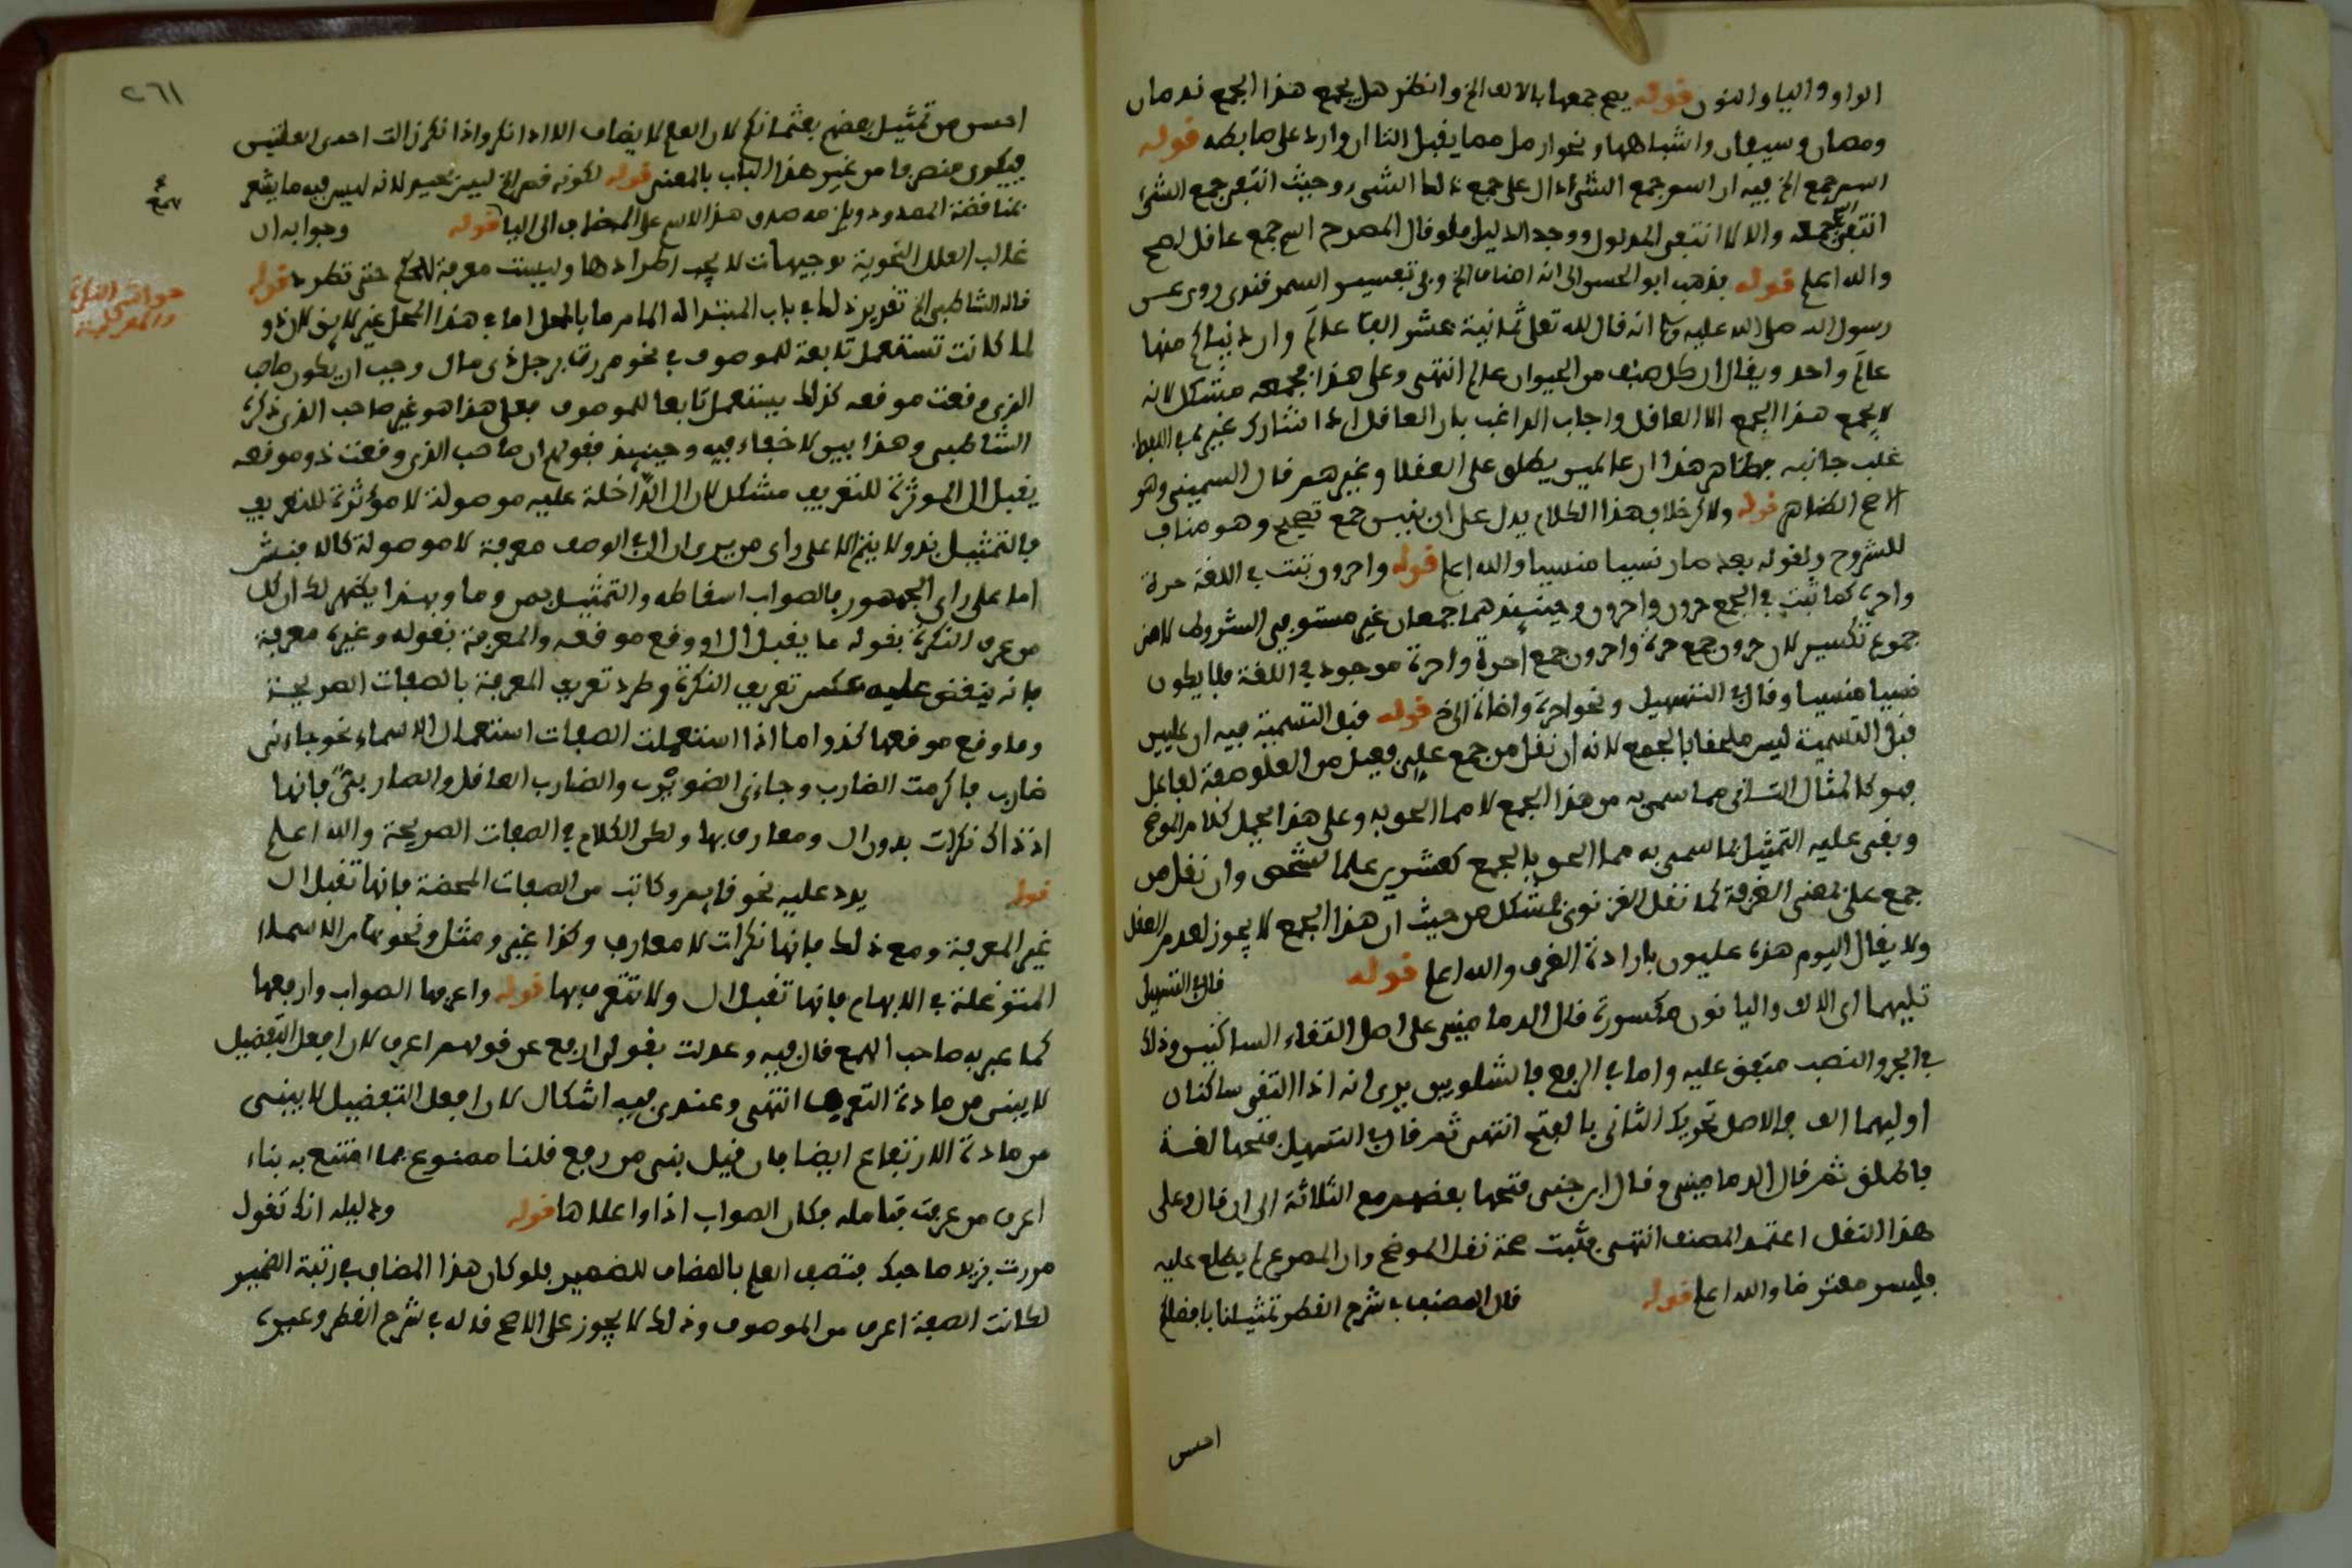 الواو والياء والنون قوله يصح جمعها بالالف الخ وانظر هل يجمع هذا الجمع ندمان
وسيفان واشباهها ونحو ارمل مما يقبل التا ان وارد على ضابطه قوله
اسم جمع الخ فيه ان اسم جمع الشيء دال على جمع ذلك الشيء وحيث انتفى جمع الشيء
انتفى اسم جمعه والا لانتفى المدلول ووجد الدليل فلو قال المصرح اسم جمع عاقل لصح
والله اعلم قوله فذهب ابو الحسن الى انه اصناف الخ وفي تفسير السمرقندى روى عن
رسول الله صلى الله عليه وسلم انه قال لله تعلى ثمانية عشر الف عالم وان دنياكم منها
عالم واحد ويقال ان كل صنف من الحيوان عالم انتهى وعلى هذا فجمعه مشكل لانه
لا يجمع هذا الجمع الا العاقل واجاب الراغب بان العاقل اذا شارك غيره في اللفظ
غلب جانبه فظاهر هذا ان عالمين يطلق على العقلا وغيرهم قال السمين وهو
الاصح الظاهر قوله ولا كر خلاف هذا الكلام يدل على ان بنين جمع تصحيح وهو مناف
للشروح ولقوله بعد صار نسيا منسيا والله اعلم قوله واحرون ثبت في اللغة حرة
واحرة كما ثبت في الجمع حرون واحرون وحينئذ هما جمعان غير مستوفي الشروط لا من
جموع تكسير لان حرون جمع حرة واحرون جمع احرة واحرة موجود في اللغة فلا يكون
نسيا منسيا وقال في التسهيل ونحو احرة واضاة الخ قوله قبل التسمية فيه ان عليين
قبل التسمية ليس ملحقا بالجمع لانه ان نقل من جمع علي فعيل من العلو صفة لعاقل
فهو كالمثال الثاني مما سمي به من هذا الجمع لا مما الحق به وعلى هذا يحمل كلام الموضح
وبقى عليه التمثيل بما سمى به مما الحق بالجمع كعشرين علما لشخص وان نقل من
جمع علي بمعنى الغرفة كما نقل الغزنوى فمشكل من حيث ان هذا الجمع لا يجوز لعدم العقل
ولا يقال اليوم هذه عليون بارادة الغرف والله اعلم قوله قال في التسهيل
تليهما اى الالف واليا نون مكسورة قال الدمامينى على اصل التقاء الساكنين وذلك
في الجر والنصب متفق عليه واما في الرفع فالشلوبين يرى انه اذا التقى ساكنان
اوليهما الف فالاصل تحريك الثانى بالفتح انتهى ثم قال في التسهيل فتحها لغة
فاطلق ثم قال الدمامينى وقال ابن جنى فتحها بعضهم مع الثلاثة الى ان قال وعلى
هذا النقل اعتمد المصنف انتهى فثبت صحة نقل الموضح وان المصرح لم يطلع عليه
فليس معترضا والله اعلم قوله قال المصنف في شرح القطر تمثيلنا بافضلكم
احسن
٢٦١
احسن من تمثيل بعضهم بعثمانكم لان العلم لا يضاف الا اذا نكر واذا نكر زالت احدى العلتين
فيكون منصرفا من غير هذا الباب بالمعنى قوله لكونه فصل الخ ليس بجيد لانه ليس فيه ما يشعر
بمناقضة المحدود ويلزمه صدق هذا الاسم على المضاف الى اليا قوله وجوابه ان
غالب العلل النحوية توجيهات لا يجب اطرادها وليست معرفة للحكم حتى تطرد قوله
حواشى النكرة
والمعرفة
قاله الشاطبى الخ تقرير ذلك في باب المبتدا انه المامر ما بالمحل اما في هذا المحل غير لايق لان ذو
لما كانت تستعمل تابعة للموصوف في نحو مررت برجل ذى مال وجب ان يكون صاحب
الذى وقعت موقعه كذلك يستعمل تابعا للموصوف فعلى هذا هو غير صاحب الذى ذكره
الشاطبى وهذا بين لا خفاء فيه وحينئذ فقولهم ان صاحب الذى وقعت ذو موقعه
يقبل ال الموثرة للتعريف مشكل لان ال الداخلة عليه موصولة لا مؤثرة للتعريف
فالتمثيل بذو لا يتم الا على راى من يرى ان ال في الوصف معرفة لا موصولة كالاخفش
اما على راى الجمهور فالصواب اسقاطه والتمثيل بمن وما وبهذا يظهر لك ان كل
من عرف النكرة بقوله ما يقبل ال او وقع موقعه والمعرفة بقوله وغيره معرفة
فانه ينتقض عليه عكس تعريف النكرة وطرد تعريف المعرفة بالصفات الصريحة
وما وقع موقعها كذو اما اذا استعملت الصفات استعمال الاسماء نحو جاءنى
ضارب فاكرمت الضارب وجاءنى الضويرب والضارب العاقل فانها
اذ ذاك نكرات بدون ال ومعارف بها ولكن الكلام في الصفات الصريحة والله اعلم
قوله يرد عليه نحو قايم وكاتب من الصفات المحضة فانها تقبل ال
غير المعرفة ومع ذلك فانها نكرات لا معارف وكذا غير ومثل ونحوهما من الاسماء
المتوغلة في الابهام فانها تقبل ال ولا تتعرف بها قوله واعرفها الصواب وارفعها
كما عبر به صاحب اللمع قال فيه وعدلت بقولى ارفع عن قولهم اعرف لان افعل التفضيل
لا يبنى من مادة التعريف انتهى وعندى فيه اشكال لان افعل التفضيل لا يبنى
من مادة الارتفاع ايضا فان قيل بنى من رفع قلنا ممنوع فما امتنع به بناء
اعرف من عرفت فتامله فكان الصواب اذا واعلاها قوله ودليله انك تقول
مررت بزيد صاحبك فتصف العلم بالمضاف للضمير فلو كان هذا المضاف في رتبة الضمير
لكانت الصفة اعرف من الموصوف وذلك لا يجوز على الاصح قاله في شرح القطر وغيره